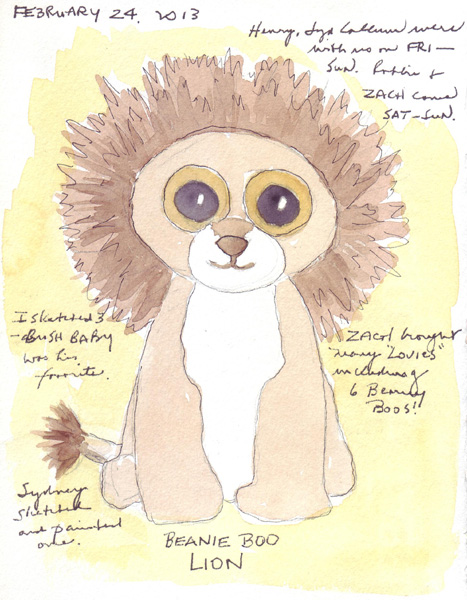 FEBRUARY 24, 2013
Henry, Syd Callum were
with us on FRI –
SUN. Robbie &
ZACH came
SAT – SUN.
I sketched 3
– BUSH BABY
was his
favorite.
ZACH brought
many "Lovies"
including
6 Beany
Boos!!
Sydney
sketched
and painted
one.
BEANIE BOO
LION